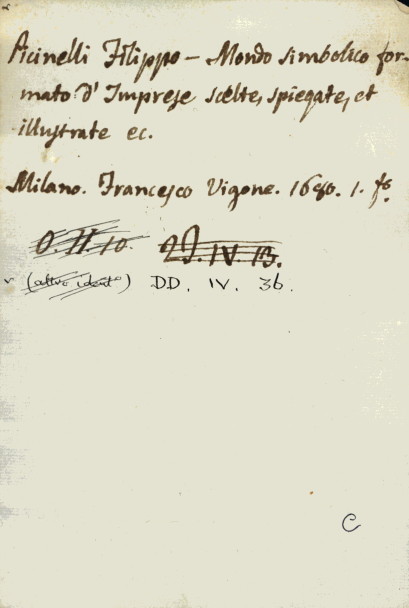 Picinelli Filippo — Mondo simbolico for-
mato d' Imprese scelte, spiegate, et
illustrate ec.
Milano. Francesco Vigone. 1680. 1. fo.
O. II 10. DD. IV. 13.
v (altro ident.o) DD. IV. 36.
C